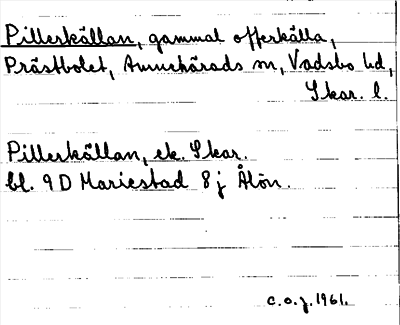 Pillerkällan, gammal offerkälla,
Prästbolet, Amnehärads sn, Vadsbo hd,
Skar. l.
Pillerkällan, ek. Skar.
bl. 9D Mariestad 8j Åtön.
c.o.j. 1961.